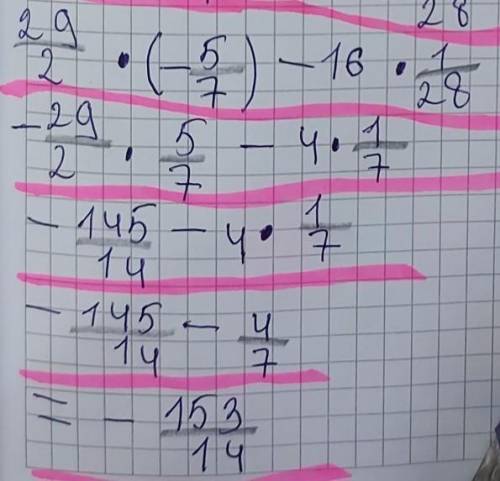 28
29/2 · (-5/7) - 16 · 1/28
-29/2 · 5/7 - 4 · 1/7
-145/14 - 4 · 1/7
-145/14 - 4/7
= -153/14